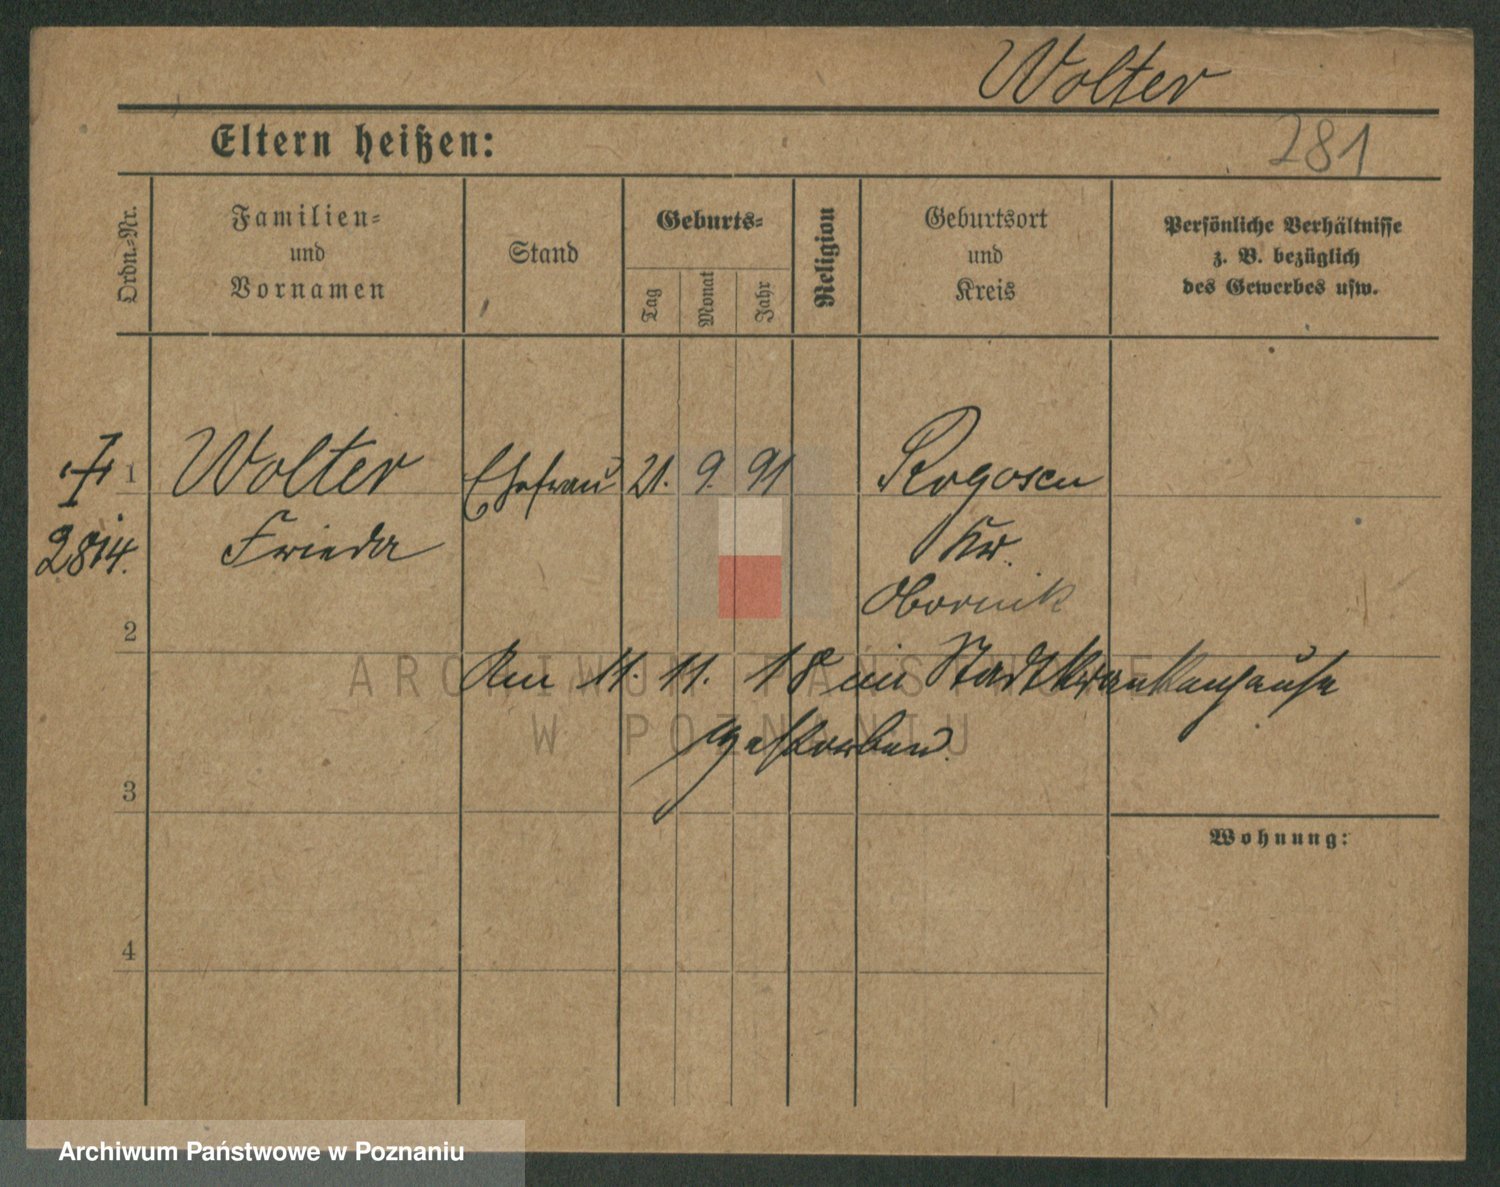 Wolter
281
Eltern heißen:
Ordn.-Nr.
Familien-
und
Vornamen
Stand
Geburts-
Tag
Monat
Jahr
Religion
Geburtsort
und
Kreis
Persönliche Verhältnisse
z. B. bezüglich
des Gewerbes usw.
1 Wolter Ehefrau 21. 9. 91 Rogosen
Frieda Kr.
Obornik
2
Am 11. 11. 18 im Stadtkrankenhause
gestorben.
3
Wohnung:
4
ARCHIWUM PAŃSTWOWE
W POZNANIU
Archiwum Państwowe w Poznaniu